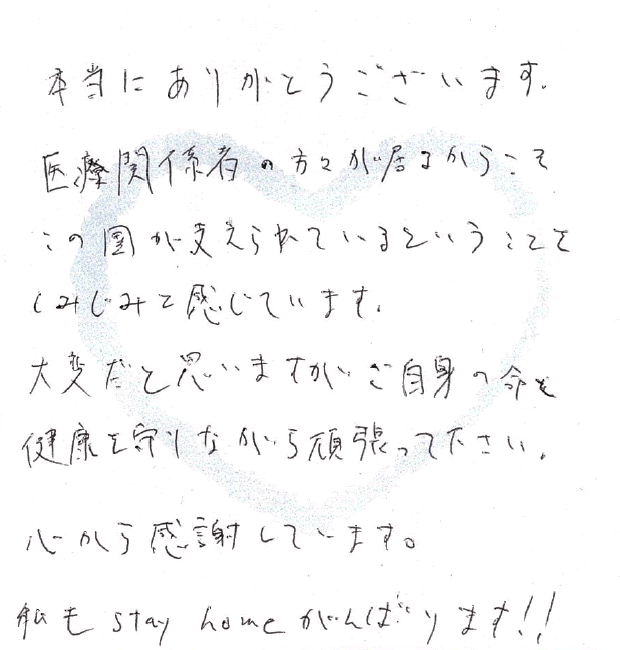 本当にありがとうございます。
医療関係者の方々が居るからこそ
この国が支えられているということを
しみじみと感じています。
大変だと思いますが、ご自身の命を
健康を守りながら頑張って下さい。
心から感謝しています。
私も stay home がんばります!!